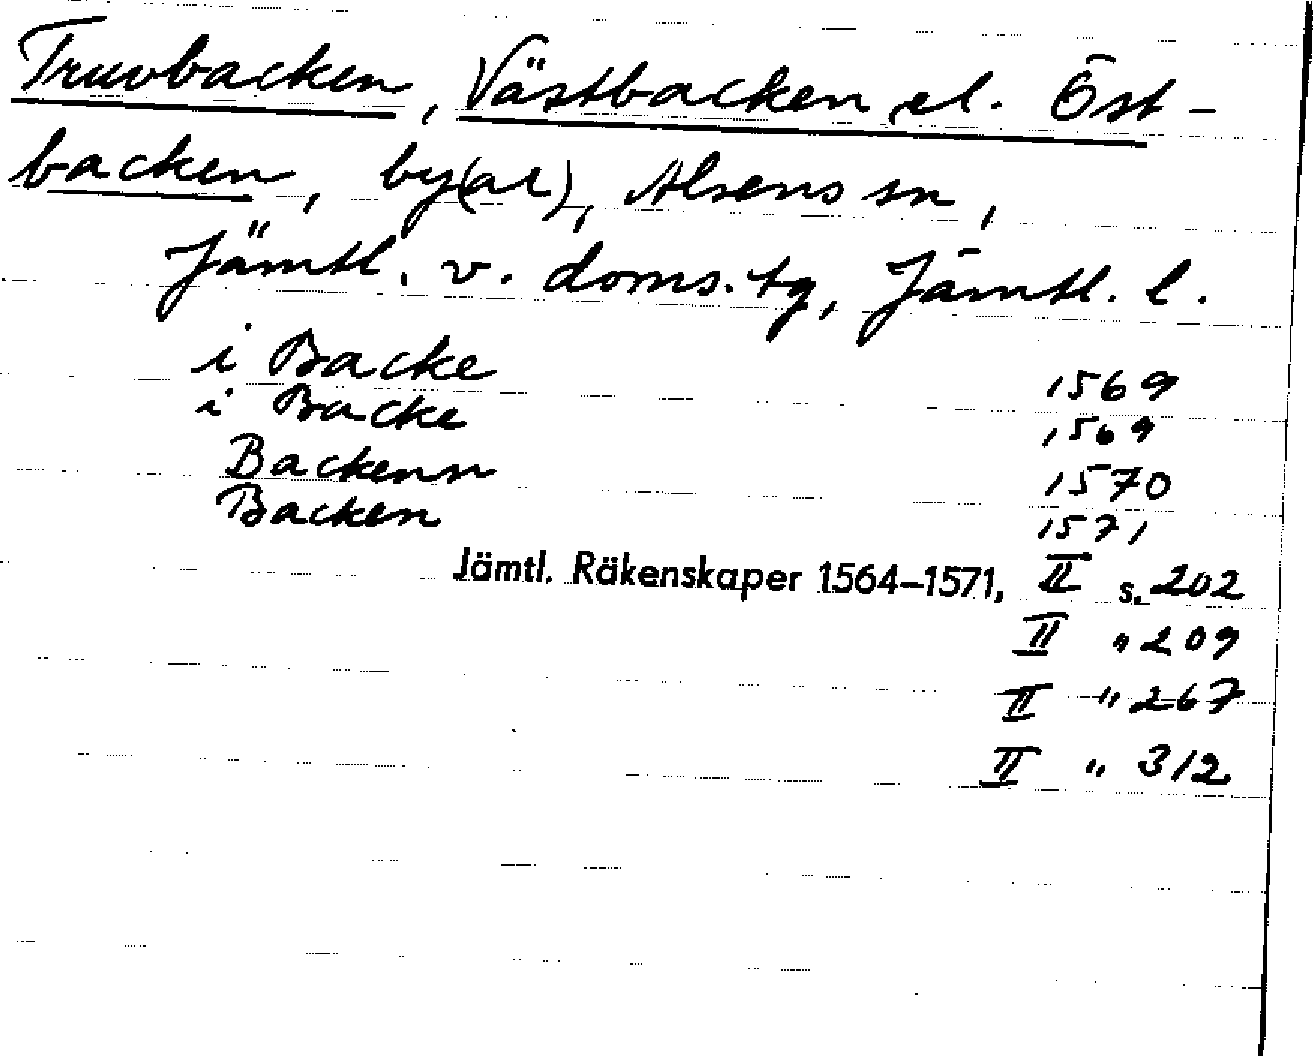 Truvbacken, Västbacken el. Öst-
backen, by(ar), Alsens sn,
Jämtl. v. doms. tg, Jämtl. l.
i Backe 1569
i Backe 1569
Backenn 1570
Backen 1571
Jämtl. Räkenskaper 1564–1571, II s. 202
II " 209
II " 267
II " 312